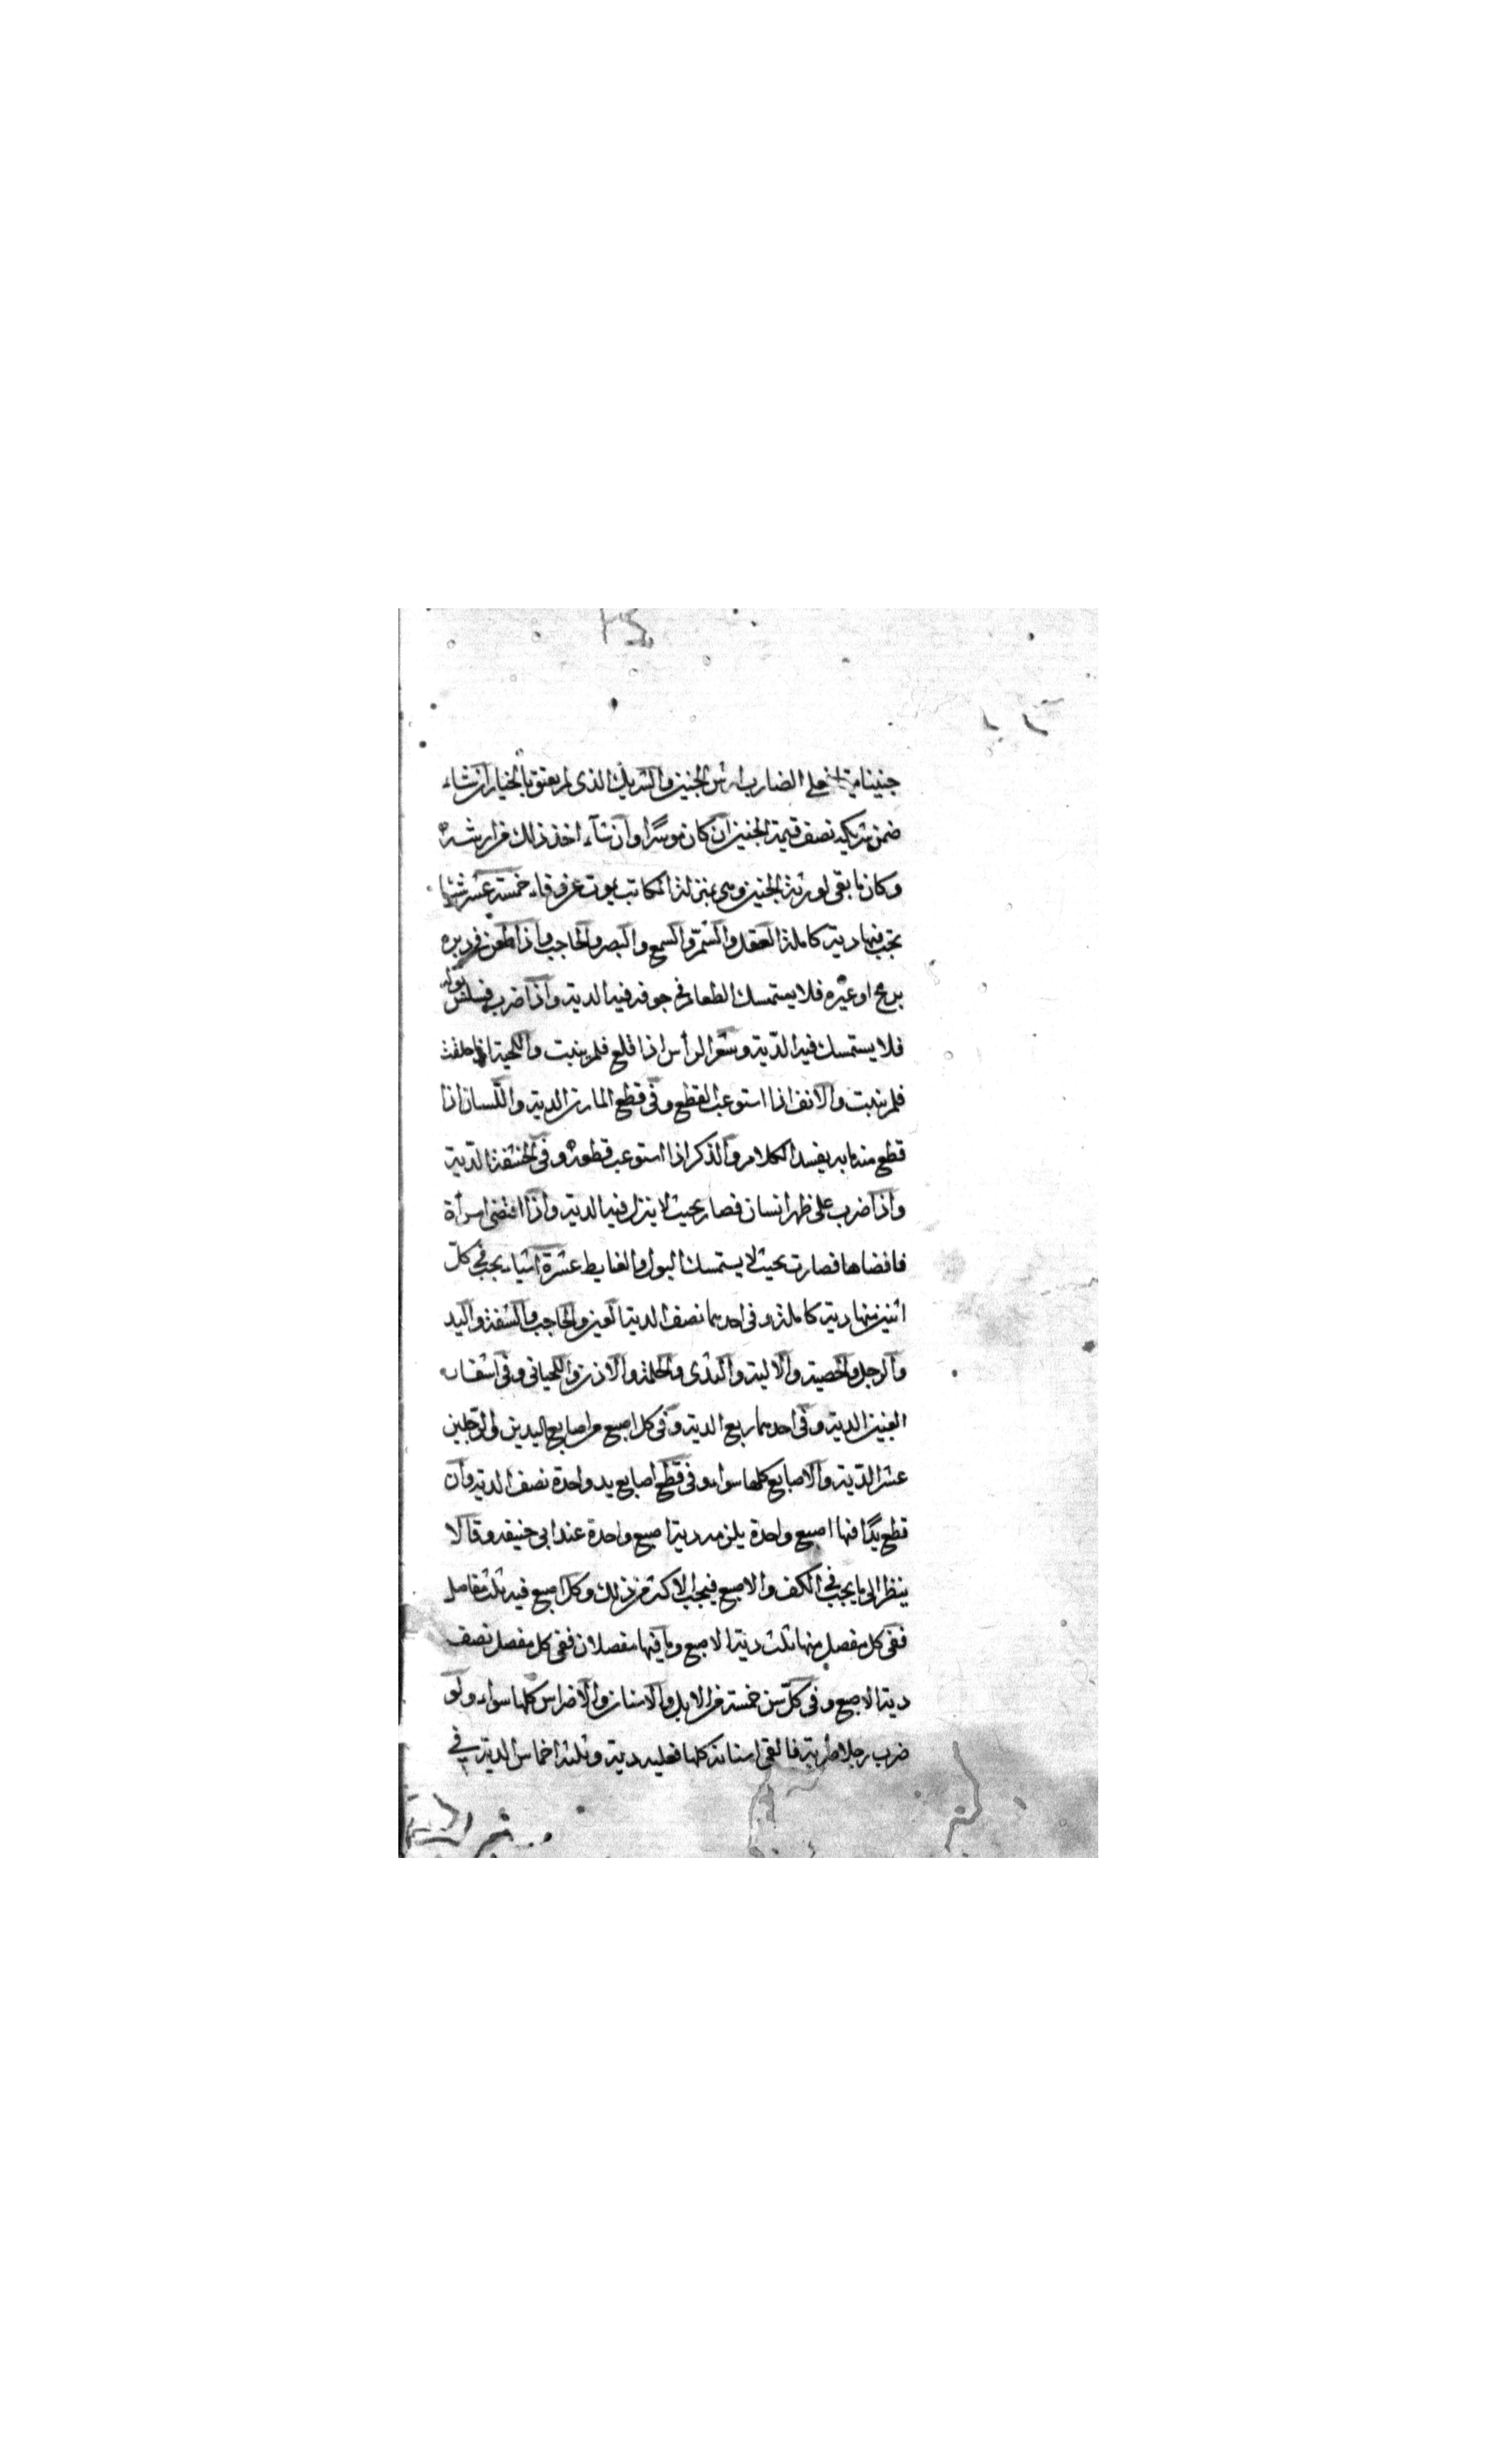 جنينا ميتا فعلى الضارب ارش الجنين والشريك الذى لم يعتق بالخيار ان شاء
ضمن شريكه نصف قيمة الجنين ان كان موسرا وان شاء اخذ ذلك من ارشه
وكان ما بقى لورثة الجنين وهى بمنزلة المكاتب يموت عن وفاء خمسة عشر شيئا
تجب فيها دية كاملة العقل والشم والسمع والبصر والحاجب واذا طعن فى دبره
برمح او غيره فلا يستمسك الطعام فى جوفه فيه الدية واذا ضرب فسلس بوله
فلا يستمسك فيه الدية وشعر الرأس اذا قلع فلم ينبت واللحية اذا حلقت
فلم ينبت والانف اذا استوعب القطع وفى قطع المارن الدية واللسان اذا
قطع منه ما به يفسد الكلام والذكر اذا استوعب قطعه وفى الحشفة الدية
واذا ضرب على ظهر انسان فصار بحيث لا ينزل فيه الدية واذا افتضى امرأة
فافضاها فصارت بحيث لا يستمسك البول والغايط عشرة اشياء يجب فى كل
اثنين منها دية كاملة وفى احدهما نصف الدية العين والحاجب والشفة واليد
والرجل والخصية والالية والثدى والحلمة والاذن واللحيانى وفى اشفار
العينين الدية وفى احدهما ربع الدية وفى كل اصبع من اصابع اليدين والرجلين
عشر الدية والاصابع كلها سواء وفى قطع اصابع يد واحدة نصف الدية وان
قطع يدا فيها اصبع واحدة يلزمه دية اصبع واحدة عند ابى حنيفه وقالا
ينظر الى ما يجب فى الكف والاصبع فيجب الاكثر من ذلك وكل اصبع فيه ثلث مفاصل
ففى كل مفصل منها ثلث دية الاصبع وما فيها مفصلان ففى كل مفصل نصف
دية الاصبع وفى كل سن خمسة من الابل والاسنان والاضراس كلها سواء ولو
ضرب رجلا ضربة فالقى اسنانه كلها فعليه دية وثلثة اخماس الدية فى